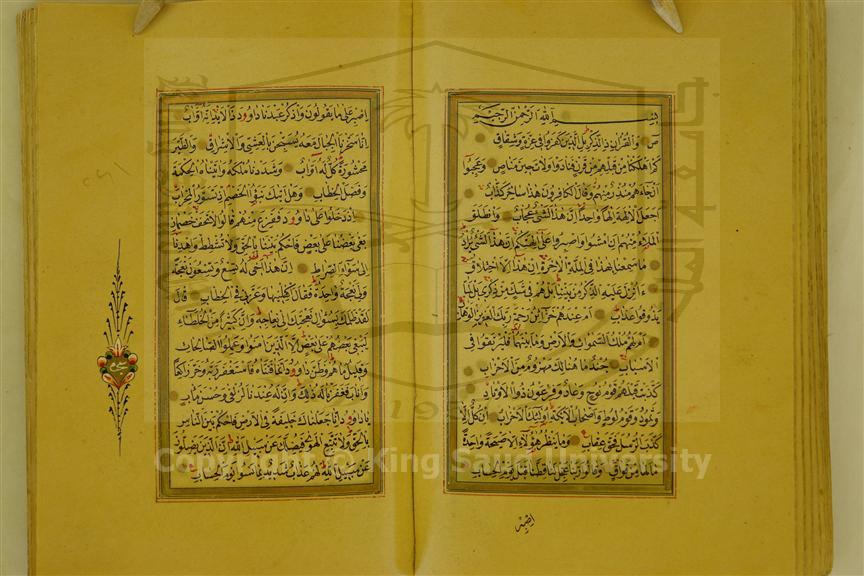 بسم الله الرحمن الرحيم
ص والقرآن ذي الذكر بل الذين كفروا في عزة وشقاق
كم اهلكنا من قبلهم من قرن فنادوا ولات حين مناص وعجبوا
ان جاءهم منذر منهم وقال الكافرون هذا ساحر كذاب
اجعل الآلهة الها واحدا ان هذا لشئ عجاب وانطلق
الملأ منهم ان امشوا واصبروا على آلهتكم ان هذا لشئ يراد
ما سمعنا بهذا في الملة الآخرة ان هذا الا اختلاق
ءانزل عليه الذكر من بيننا بل هم في شك من ذكري بل لما
يذوقوا عذاب ام عندهم خزائن رحمة ربك العزيز الوهاب
ام لهم ملك السموات والارض وما بينهما فليرتقوا في
الاسباب جند ما هنالك مهزوم من الاحزاب
كذبت قبلهم قوم نوح وعاد وفرعون ذو الاوتاد
وثمود وقوم لوط واصحاب الايكة اولئك الاحزاب ان كل الا
كذب الرسل فحق عقاب وما ينظر هؤلاء الا صيحة واحدة
ما لها من فواق وقالوا ربنا عجل لنا قطنا قبل يوم الحساب
اصبر
اصبر على ما يقولون واذكر عبدنا داوود ذا الايد انه اواب
انا سخرنا الجبال معه يسبحن بالعشي والاشراق والطير
محشورة كل له اواب وشددنا ملكه وآتيناه الحكمة
وفصل الخطاب وهل اتيك نبؤا الخصم اذ تسوروا المحراب
اذ دخلوا على داوود ففزع منهم قالوا لا تخف خصمان
بغى بعضنا على بعض فاحكم بيننا بالحق ولا تشطط واهدنا
الى سواء الصراط ان هذا اخي له تسع وتسعون نعجة
ولي نعجة واحدة فقال اكفلنيها وعزني في الخطاب قال
لقد ظلمك بسؤال نعجتك الى نعاجه وان كثيرا من الخلطاء
ليبغي بعضهم على بعض الا الذين آمنوا وعملوا الصالحات
وقليل ما هم وظن داوود انما فتناه فاستغفر ربه وخر راكعا
واناب فغفرنا له ذلك وان له عندنا لزلفى وحسن مآب
يا داوود انا جعلناك خليفة في الارض فاحكم بين الناس
بالحق ولا تتبع الهوى فيضلك عن سبيل الله ان الذين يضلون
عن سبيل الله لهم عذاب شديد بما نسوا يوم الحساب
Copyright © King Saud University